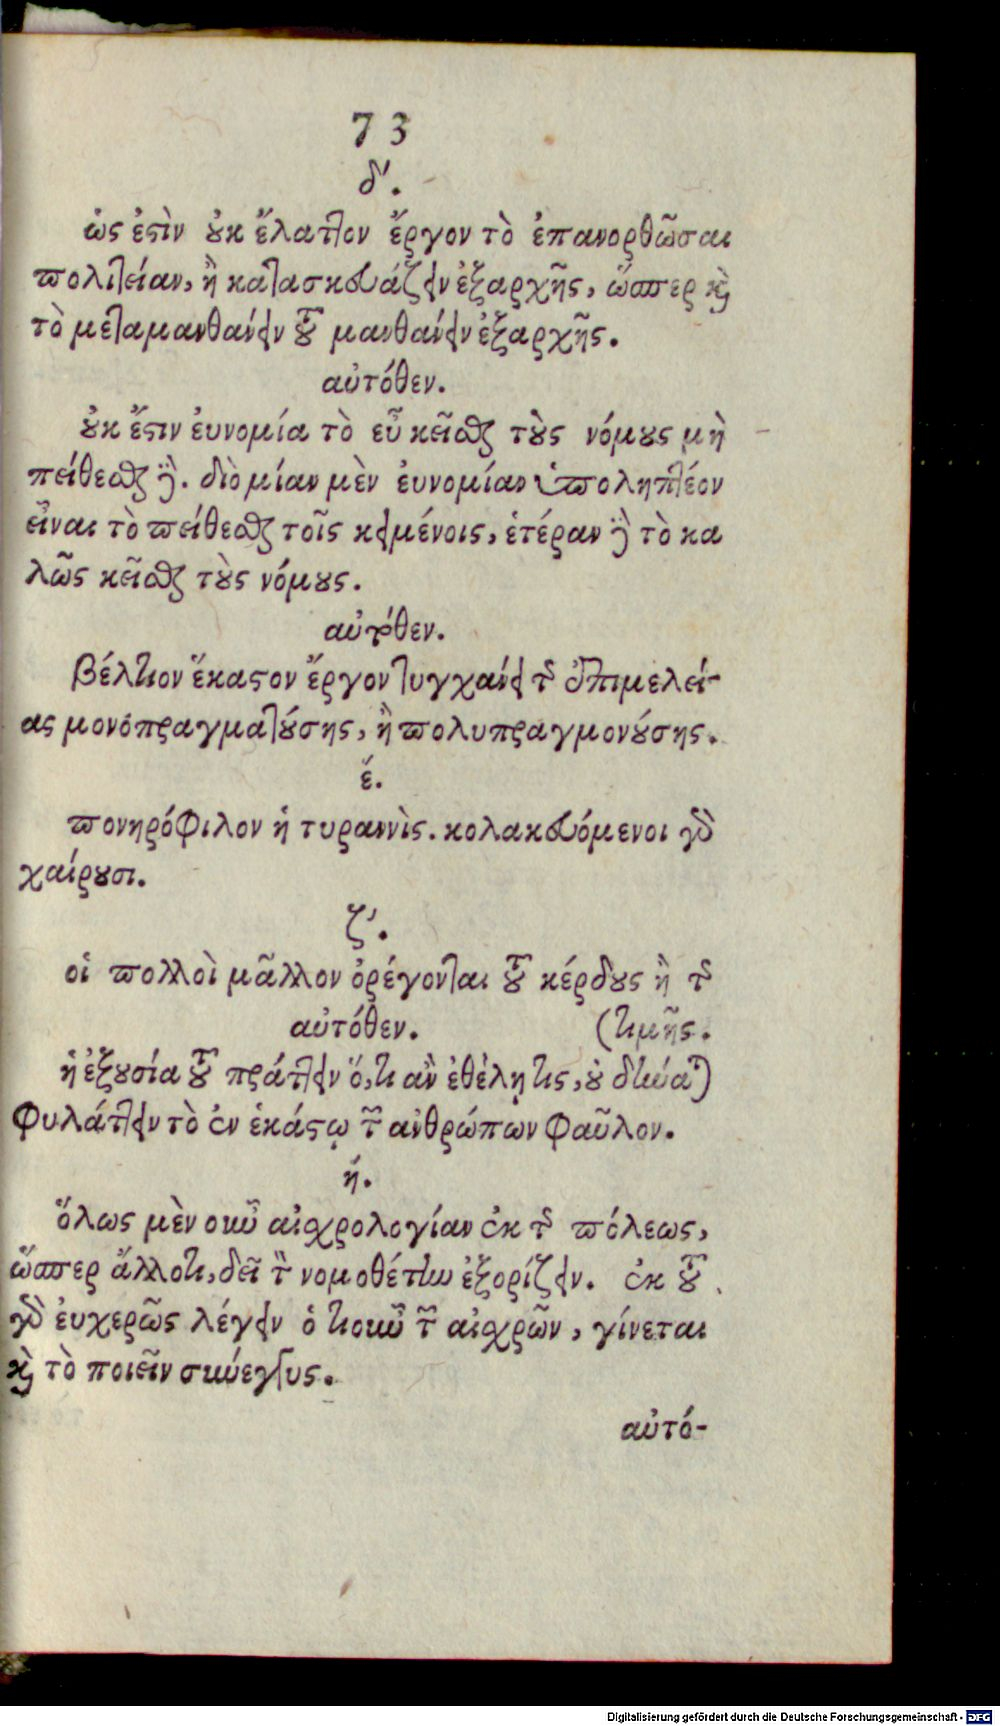 73
δ'.
ὡς ἐστὶν οὐκ ἔλαττον ἔργον τὸ ἐπανορθῶσαι
πολιτείαν, ἢ κατασκευάζειν ἐξαρχῆς, ὥσπερ καὶ
τὸ μεταμανθάνειν τοῦ μανθάνειν ἐξαρχῆς.
αὐτόθεν.
οὐκ ἔστιν ἐυνομία τὸ εὖ κεῖσθαι τοὺς νόμους μὴ
πείθεσθαι δὲ. διὸ μίαν μὲν ἐυνομίαν ὑποληπτέον
εἶναι τὸ πείθεσθαι τοῖς κειμένοις, ἑτέραν δὲ τὸ κα
λῶς κεῖσθαι τοὺς νόμους.
αὐτόθεν.
βέλτιον ἕκαστον ἔργον τυγχάνει τῆς ἐπιμελεί-
ας μονοπραγματούσης, ἢ πολυπραγμονούσης.
έ.
πονηρόφιλον ἡ τυραννὶς. κολακευόμενοι γὰρ
χαίρουσι.
ζ'.
οἱ πολλοὶ μᾶλλον ὀρέγονται τοῦ κέρδους ἢ τῆς
αὐτόθεν. (τιμῆς.
ἡ ἐξουσία τοῦ πράττειν ὅ,τι ἂν ἐθέλῃ τις, οὐ δύναται
φυλάττειν τὸ ἐν ἑκάστῳ τῶν ἀνθρώπων φαῦλον.
ή.
ὅλως μὲν οὖν αἰσχρολογίαν ἐκ τῆς πόλεως,
ὥσπερ ἄλλο τι, δεῖ τὸν νομοθέτην ἐξορίζειν. ἐκ τοῦ
γὰρ ἐυχερῶς λέγειν ὁτιοῦν τῶν αἰσχρῶν, γίνεται
καὶ τὸ ποιεῖν σύνεγγυς.
αὐτό-
Digitalisierung gefördert durch die Deutsche Forschungsgemeinschaft - DFG